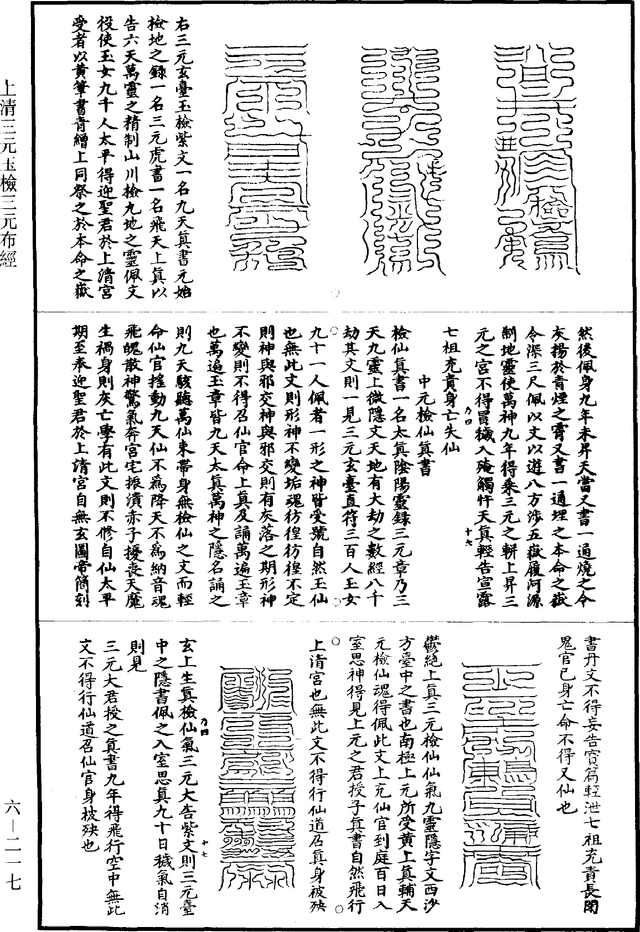 上清三元玉檢三元布經
右三元玄臺玉檢紫文一名九天真書元始
檢地之錄一名三元虎書一名飛天上真以
告六天萬靈之精制山川檢九地之靈佩文
役使玉女九千人太平得迎聖君於上清宮
受者以黃筆書青繒上同祭之於本命之嶽
然後佩身九年未昇天當又書一通燒之令
灰揚於青煙之霄又書一通埋之本命之嶽
令深三尺佩以文以遊八方涉五嶽履河源
制地靈使萬神九年得乘三元之輧上昇三
元之宮不得冒穢入殗觸忤天真輕告宣露
七祖充責身亡失仙
中元檢仙真書
檢仙真書一名太真陰陽靈錄三元章乃三
天九靈上微隱文天地有大劫之數經八千
劫其文則一見三元玄臺直符三百人玉女
九十一人佩者一形之神皆受號自然玉仙
也無此文則形神不變垢魂彷徨彷徨不定
則神與邪交神與邪交則有灰落之期形神
不變則不得召仙官命上真及誦萬遍玉章
也萬遍玉章皆九天太真萬神之隱名誦之
則九天駭聽萬仙束帶身無檢仙之文而輕
命仙官搖動九天仙不為降天不為納音魂
飛魄散神驚氣奔宮宅振潰赤子擾喪天魔
生禍身則灰亡學有此文則不修自仙太平
期至奉迎聖君於上清宮自無玄圖帝簡刻
書丹文不得妄告寶篇輕泄七祖充責長閉
鬼官已身亡命不得又仙也
鬱絕上真三元檢仙仙氣九靈隱字文西沙
方臺中之書也南極上元所受黃上真輔天
元檢仙魂得佩此文上元仙官到庭百日入
室思神得見上元之君授子真書自然飛行
上清宮也無此文不得行仙道召真身被殃
玄上生真檢仙氣三元大告紫文則三元臺
中之隱書佩之入室思真九十日穢氣自消
則見
三元大君授之真書九年得飛行空中無此
文不得行仙道召仙官身被殃也
六—二一七